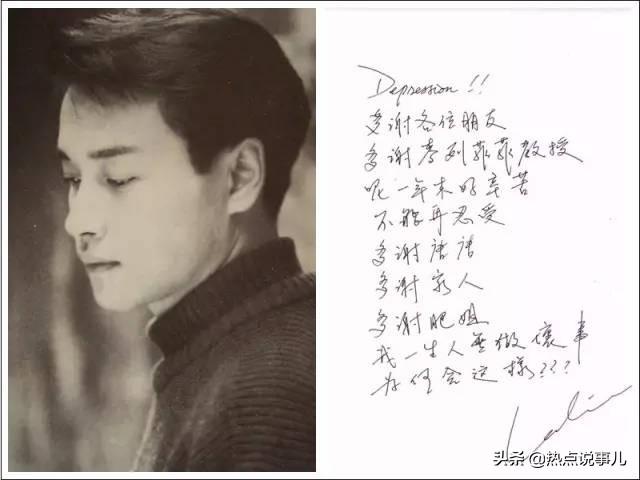 Depression!!
多谢各位朋友
多谢麦列菲菲教授
呢一年来好辛苦
不能再忍受
多谢唐唐
多谢家人
多谢肥姐
我一生人無做壞事
为何会这樣???
Leslie
头条 @热点说事儿